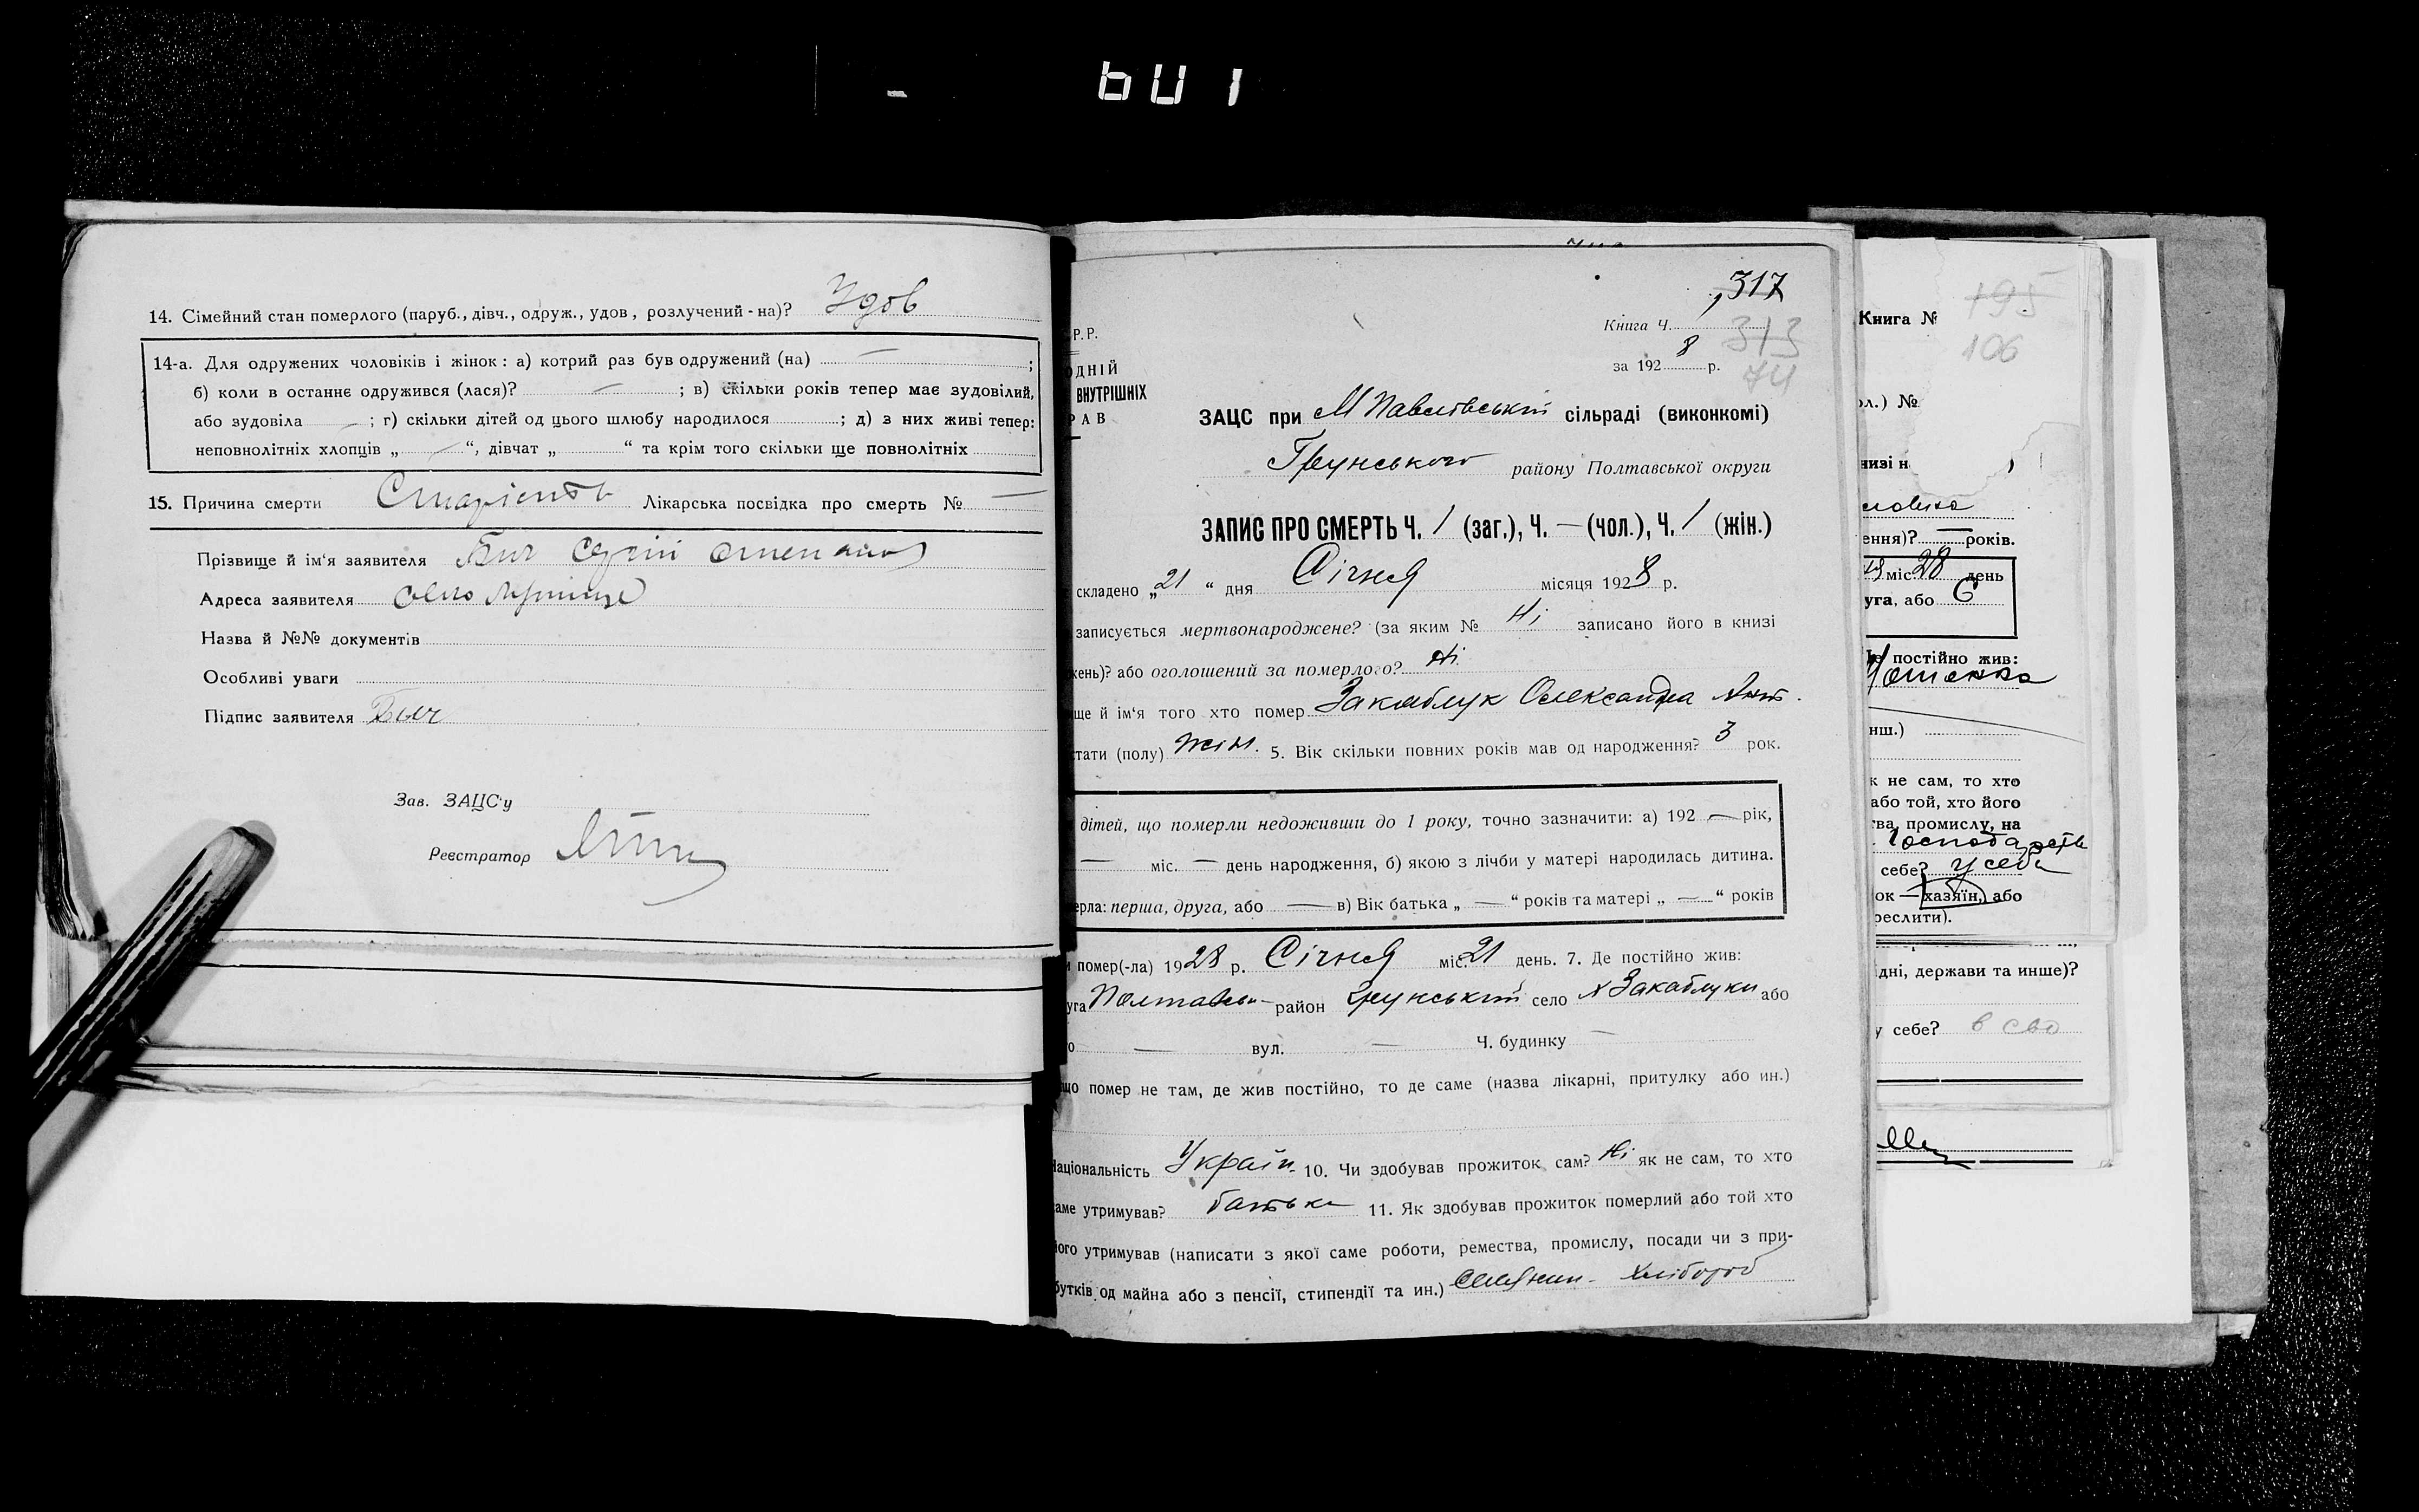 601
14. Сімейний стан померлого (паруб., дівч., одруж., удов, розлучений-на)? Удов
14-а. Для одружених чоловіків і жінок: а) котрий раз був одружений (на) — ;
б) коли в останнє одружився (лася)? — ; в) скільки років тепер має зудовілий,
або зудовіла — ; г) скільки дітей од цього шлюбу народилося ; д) з них живі тепер:
неповнолітніх хлопців „ — “, дівчат „ “ та крім того скільки ще повнолітніх
15. Причина смерти Старість Лікарська посвідка про смерть № —
Прізвище й ім'я заявителя Бич Сергій
Адреса заявителя село
Назва й №№ документів
Особливі уваги
Підпис заявителя Бич
Зав. ЗАЦС'у
Реєстратор
317
Р.Р.
Книга Ч. 1
313
за 1928 р.
74
ОДНІЙ
ВНУТРІШНІХ
РАВ
ЗАЦС при М Павлівській сільраді (виконкомі)
Грунського району Полтавської округи
ЗАПИС ПРО СМЕРТЬ Ч. 1 (заг.), Ч. — (чол.), Ч. 1 (жін.)
складено „21“ дня Січня місяця 1928 р.
записується мертвонароджене? (за яким № Ні записано його в книзі
жень)? або оголошений за померлого? Ні
ще й ім'я того хто помер Закаблук Олександра Ант.
стати (полу) жін. 5. Вік скільки повних років мав од народження? 3 рок.
дітей, що померли недоживши до 1 року, точно зазначити: а) 192 — рік,
— міс. — день народження, б) якою з лічби у матері народилась дитина.
ерла: перша, друга, або — в) Вік батька „ — “ років та матері „ — “ років
и помер(-ла) 1928 р. Січня міс. 21 день. 7. Де постійно жив:
уга Полтавськ район Грунський село х Закаблуки або
о — вул. — Ч. будинку —
що помер не там, де жив постійно, то де саме (назва лікарні, притулку або ин.)
Національність Україн. 10. Чи здобував прожиток сам? Ні як не сам, то хто
аме утримував? батьки 11. Як здобував прожиток померлий або той хто
його утримував (написати з якої саме роботи, ремества, промислу, посади чи з при-
бутків од майна або з пенсії, стипендії та ин.) Хлібороб
Книга №
195
106
ол.) №
низі н
ення)? — років.
міс. 28 день
уга, або 6
Де постійно жив:
нш.)
к не сам, то хто
або той, хто його
тва, промислу, на
себе? у себе
ок — хазяїн, або
реслити).
дні, держави та инше)?
у себе?